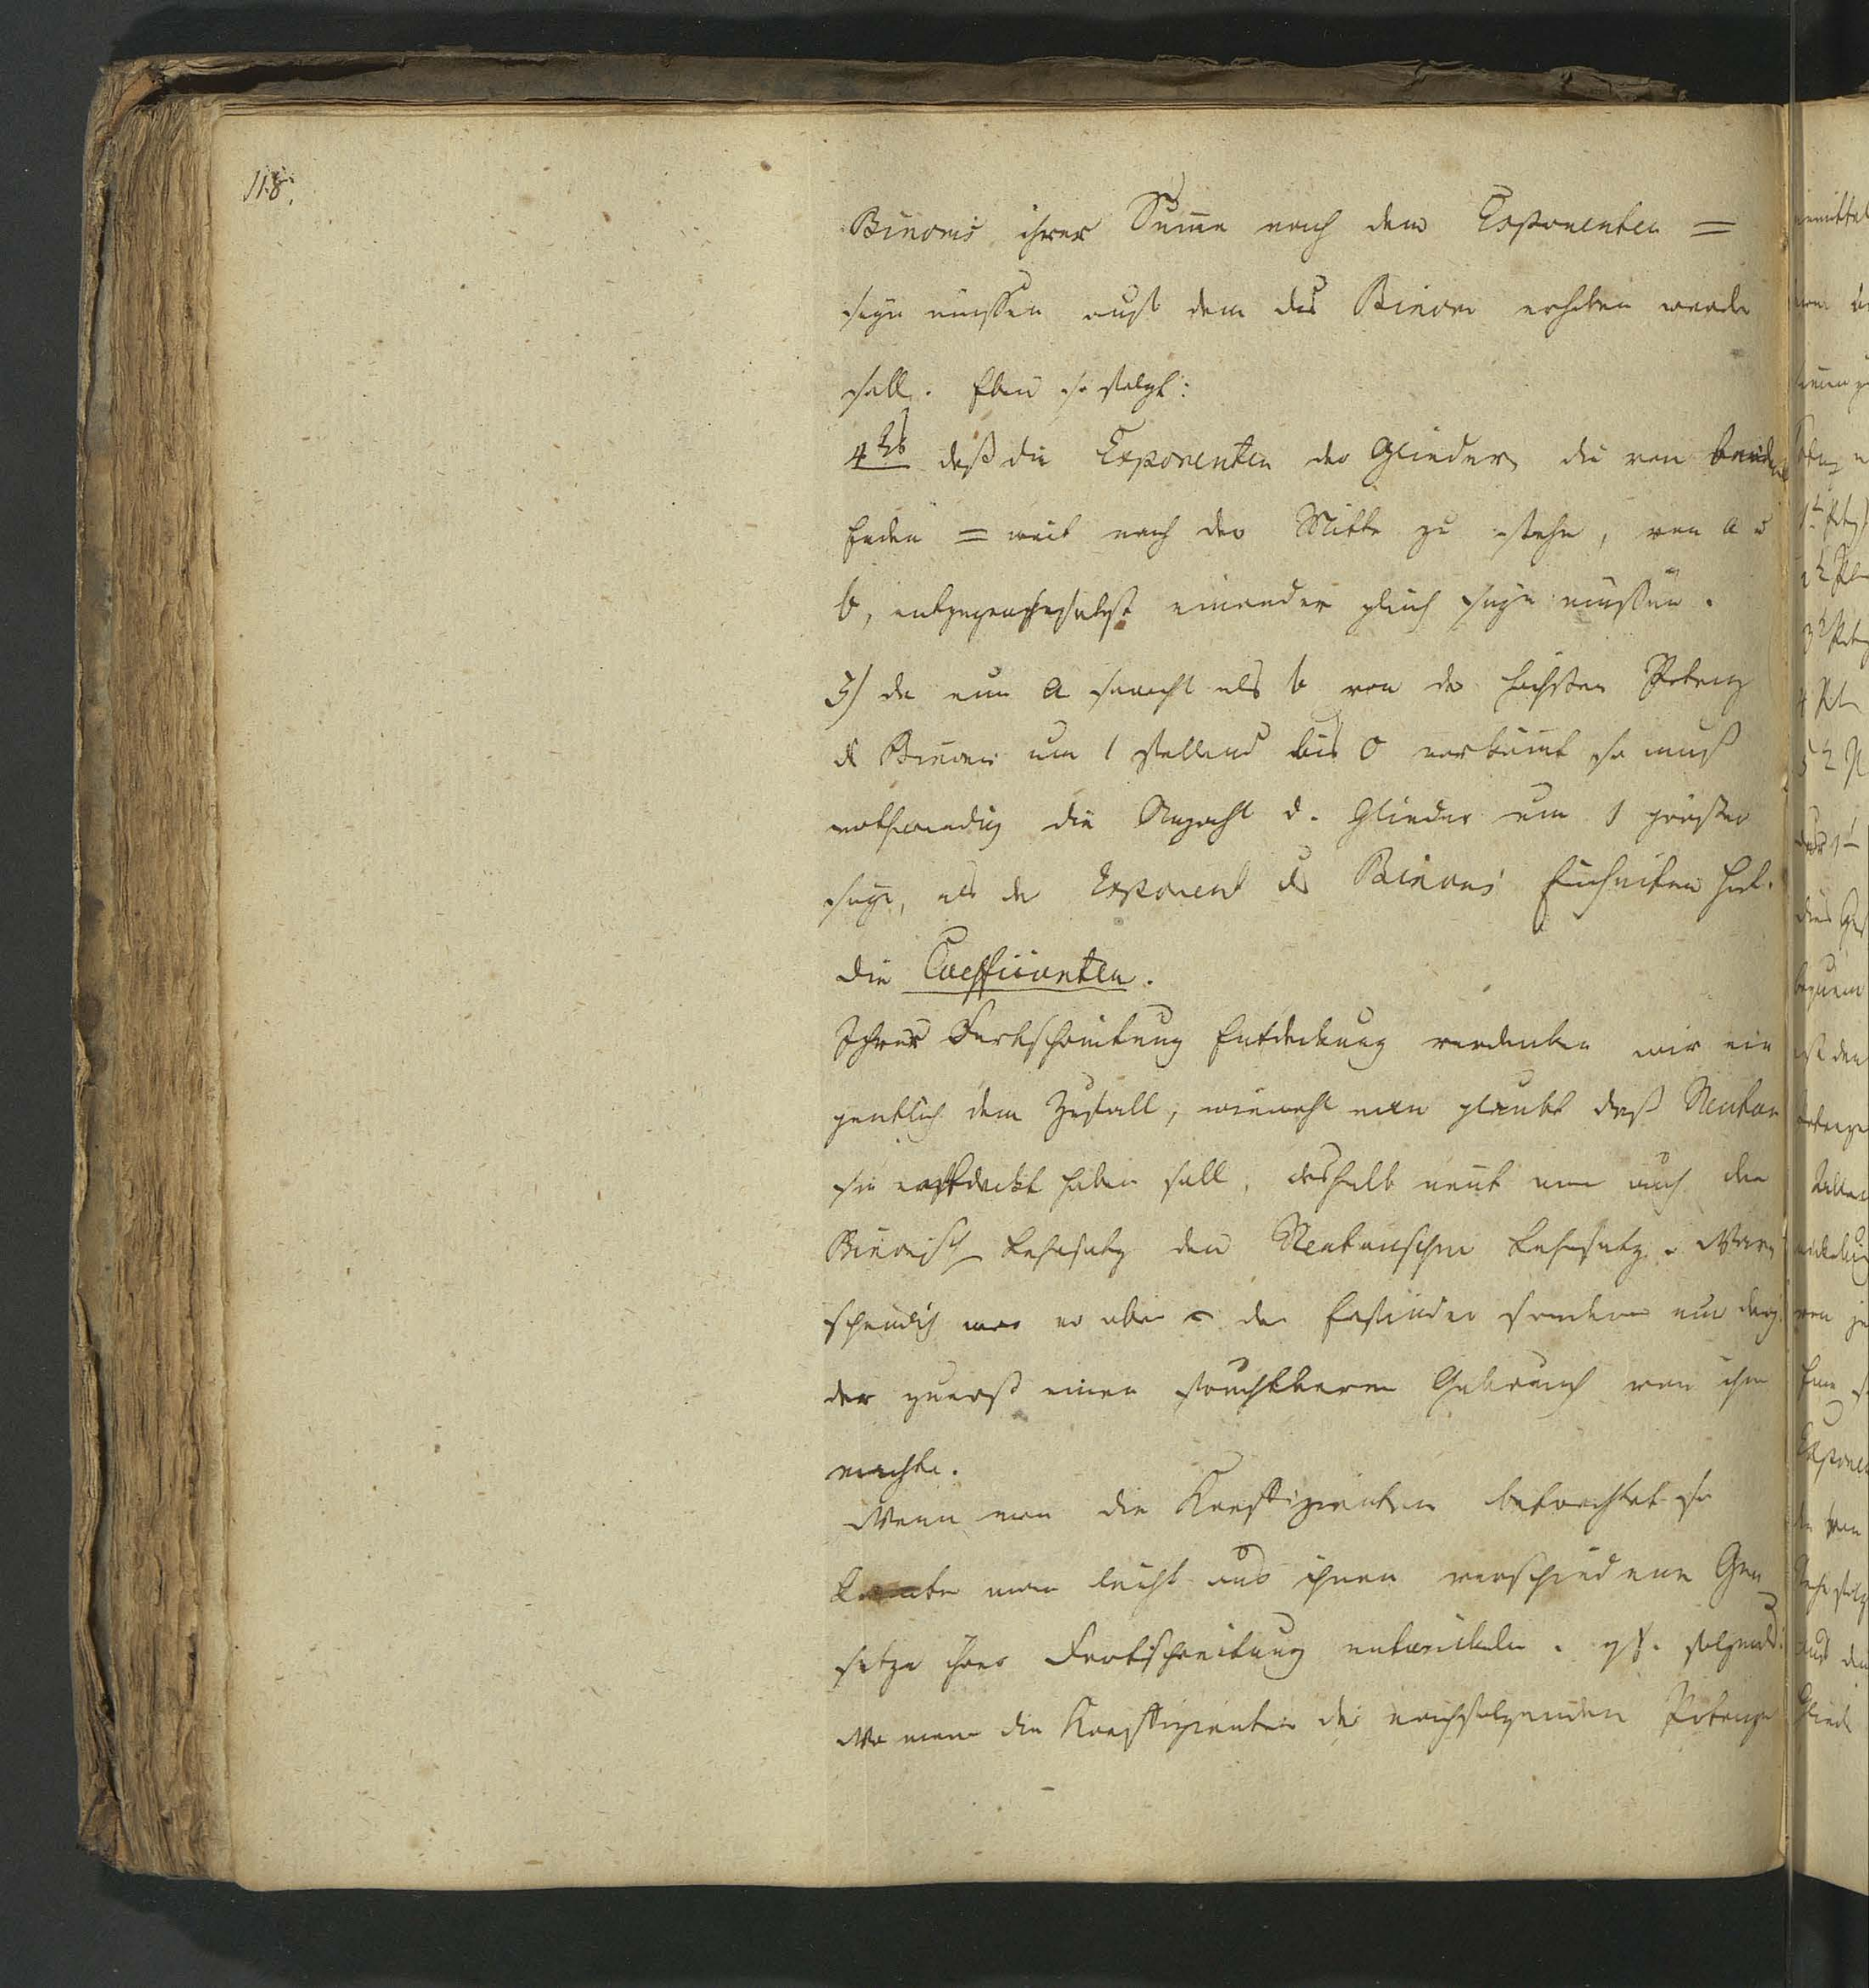 118.
Binoms ihrer Sume nach dem Exponenten =
seyn müssen auf dem das Binom erhoben werde
soll. Eben so folgt:
4tes daß die Exponenten der Glieder, die von beiden
Enden = weit nach der Mitte zu stehn, von a u
b, entgegengesetzt einander gleich seyn müssen.
5) da nun a sowohl als b von der höchsten Potenz
d Binoms um 1 fallend bis 0 vorkömt so muß
nothwendig die Anzahl d. Glieder um 1 größer
seyn, als der Exponent des Binoms Einheiten hat.
Die Coefficienten.
Ihrer Fortschreitung Entdeckung verdanken wir ei
gentlich dem Zufall, wiewohl man glaubt daß Neuton
sie entdeckt haben soll, deshalb nent man auch den
Binomisch Lehrsatz den Neutonschen Lehrsatz. War
scheinlich war er aber der Erfinder sondern nur derj.
der zuerst einen fruchtbaren Gebrauch von ihm
machte.
Wenn man die Koeffizienten betrachtet so
konte man leicht aus ihnen verschiedene Ge
setze ihrer Fortschreitung entwickeln. z.B. folgend:
Wo man die Koeffizienten der nachfolgenden Potenze